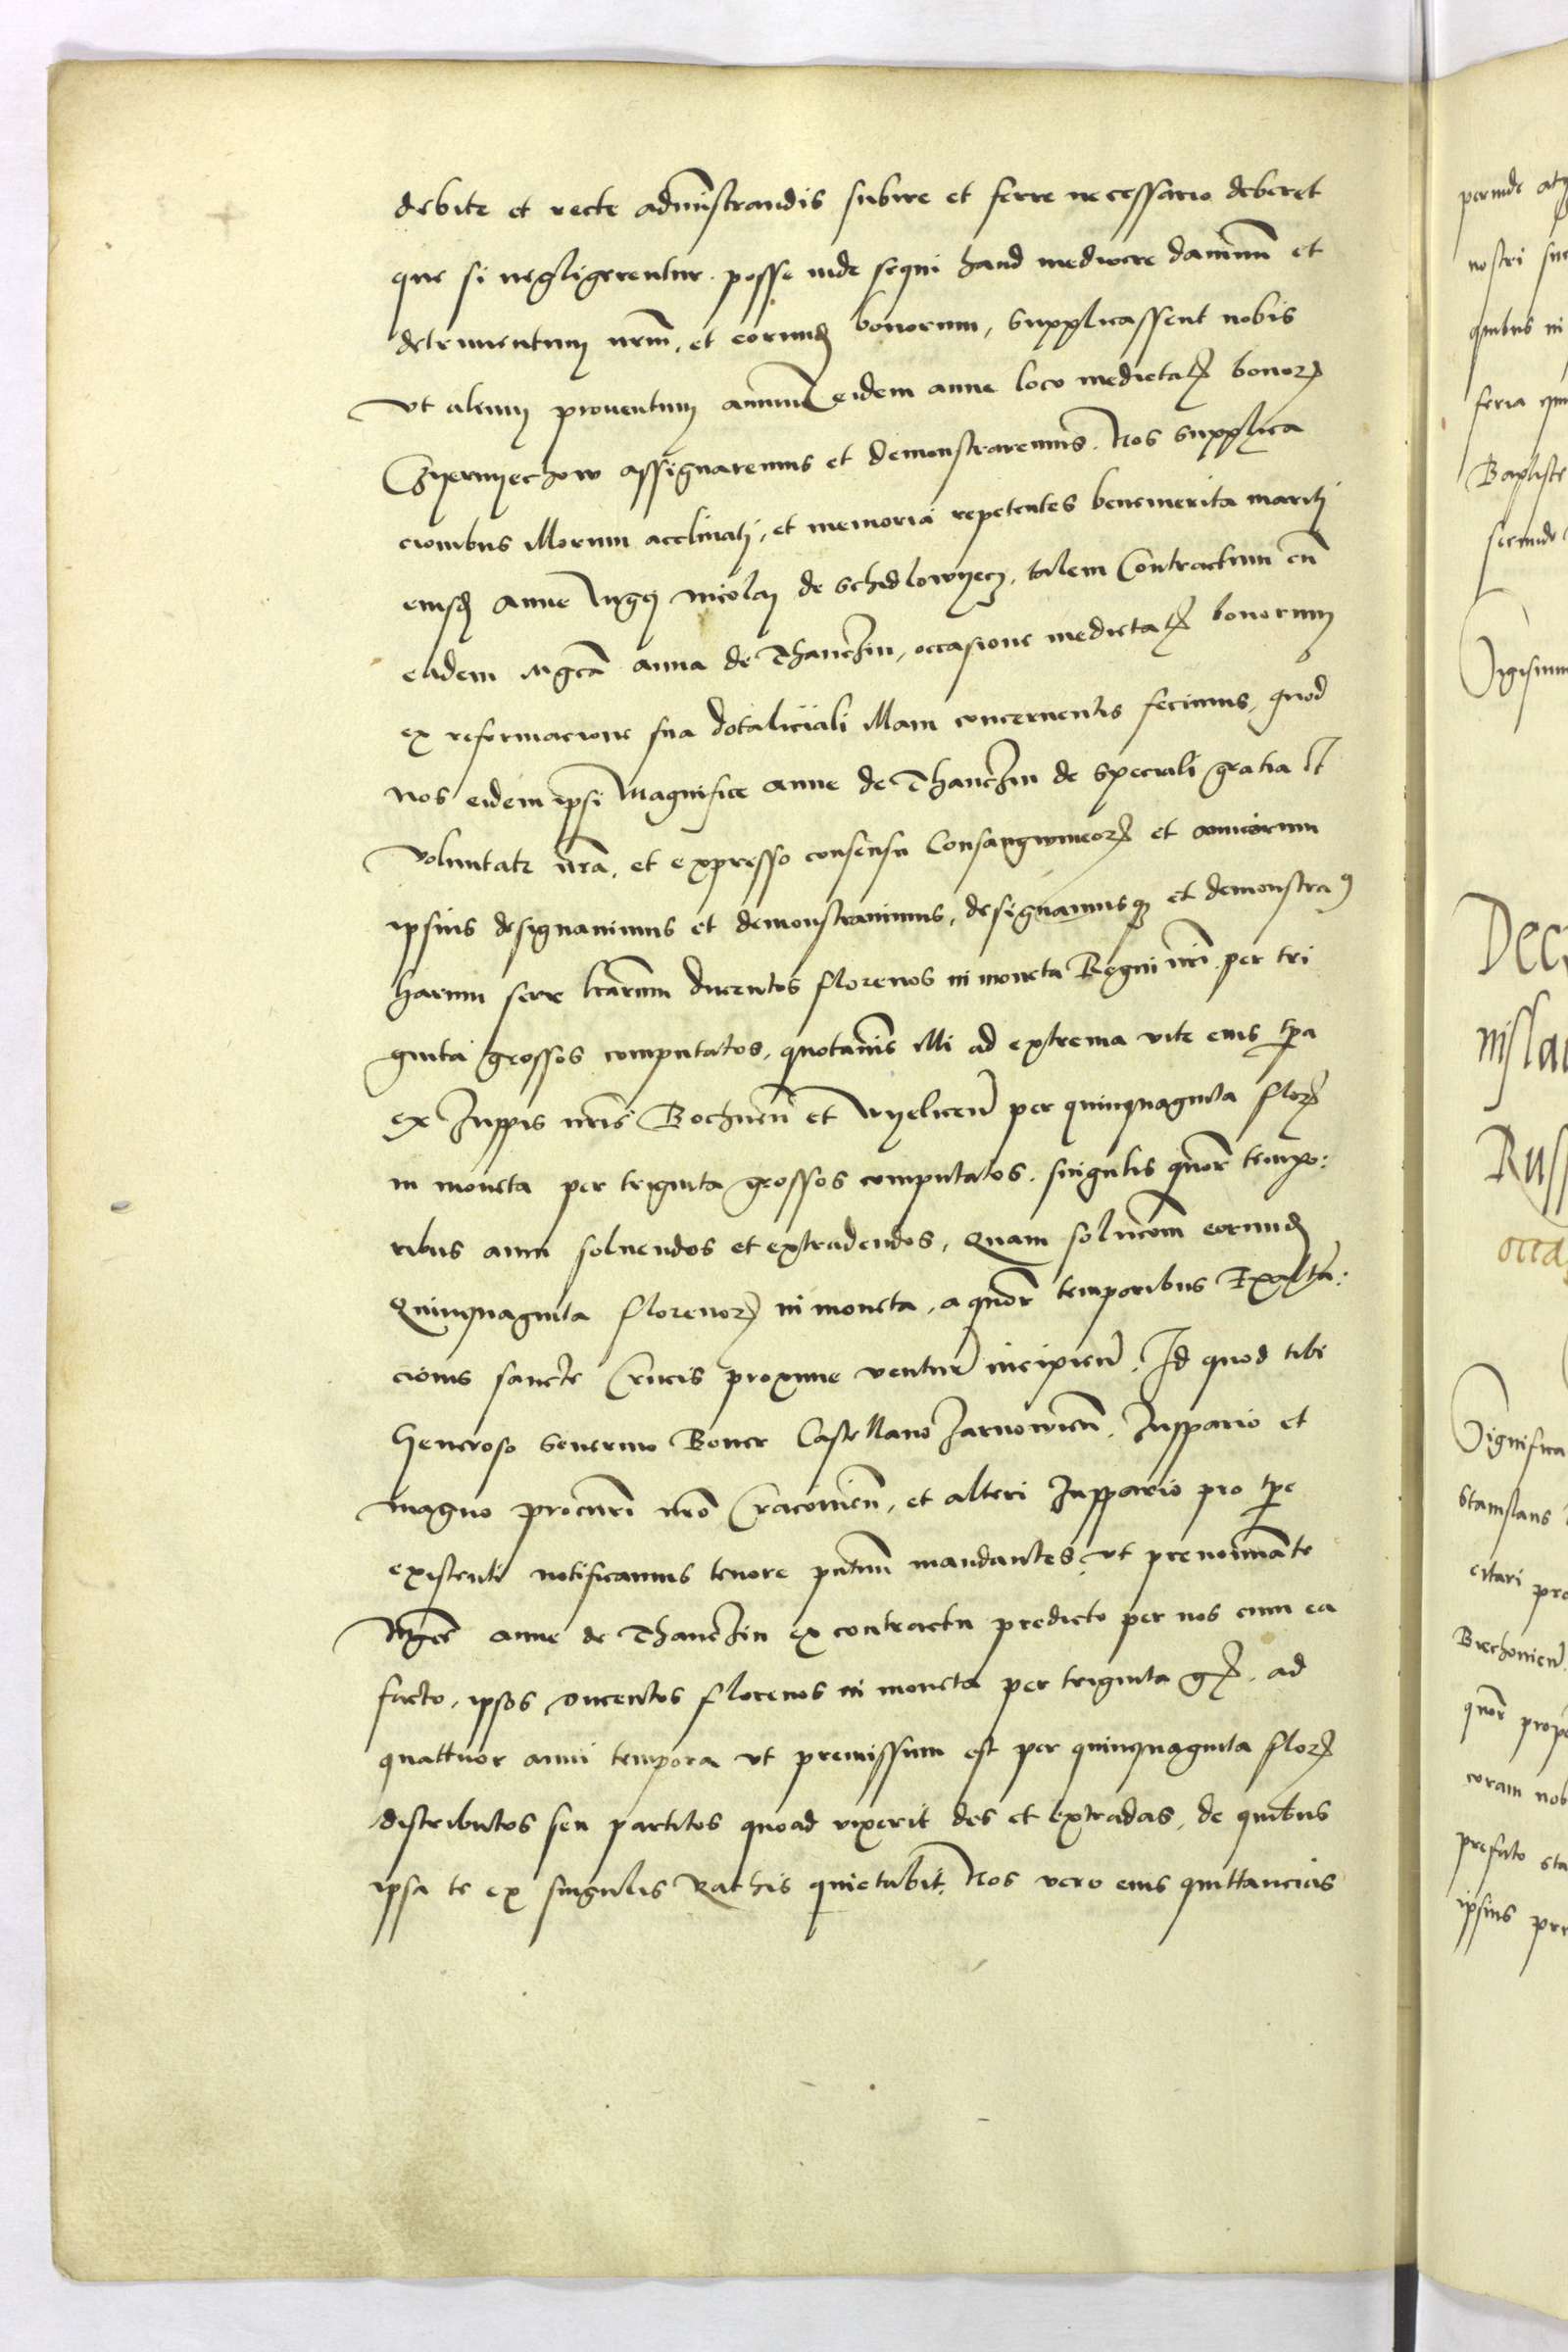 debite et recte administrandis subire et ferre necessario deberet
que si negligerentur. posse inde sequi haud mediocre damnum et
detrimentum nrm̄, et eorund bonorum, supplicassent nobis
Vt alium prouentum annuū eidem anne loco medietatꝭ bonorꝝ
assignaremus et demonstraremus. Nos supplica
cionibus illorum acclinatj, et memoria repetentes benemerita maritj
eiusd anne Mgcj Nicolaj de Schidlowyecz, talem Contractum cū
eadem Mgcā anna de Thanczin, occasione medietatꝭ bonorum
ex reformacione sua dotaliciali illam concernentis fecimus, quod
nos eidem ipsi Magnifice anne de Thanczin de speciali gratia et
voluntate nrā, et expresso consensu Consangwineorꝝ et amicorum
ipsius designauimus et demonstrauimus, designamusqꝫ et demonstramꝰ
harum serie lrarum ducentos florenos in moneta Regni nrī per tri
ginta grossos computatos, quotannis illi ad extrema vite eius tpa
ex Zuppis nrīs Bochnen̄ et Vyelicen̄ per quinquaginta florꝝ
in moneta per triginta grossos computatos. singulis quor̄ tempo:
ribus anni soluendos et extradendos, Quam solucōm eorund
Quinquaginta florenorꝝ in moneta, a quor̄ temporibus Exalta:
cionis sancte Crucis proxime ventur̄ incipien̄. Id quod tibi
Generoso Seuerino Boner Castellano Zarnowien̄, Zuppario et
magno procurī nrō Cracouien̄, et alteri Zuppario pro tpe
existenti notificamus tenore pntiū mandantes, vt prenoīnate
Mgcē anne de Thanczin ex contractu predicto per nos cum ea
facto, ipsos ducentos florenos in moneta per triginta gꝭ. ad
quattuor anni tempora vt premissum est per quinquaginta florꝝ
distributos seu partitos quoad vixerit des et extradas, de quibus
ipsa te ex singulis Rathis quietabit. Nos vero eius quittancias
perinde
nostri
quibus in
feria
Baptiste
secundo
Dec
nisla
Russ
occa
Significa
Stanislaus
citari
Brechouien̄
quor̄
coram nob
prefato sta
ipsius pre